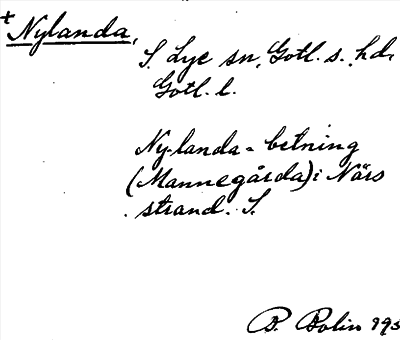 + Nylanda,
S. Lye sn, Gotl. s. hd,
Gotl. l.
Ny-landa-betning
(Mannegårda) i Närs
strand. S.
B. Bolin 193